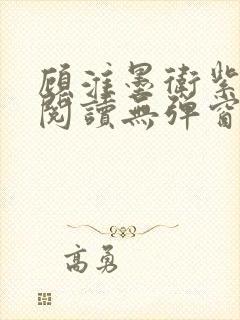 顾淮墨衛紫
閱讀無彈窗
高勇